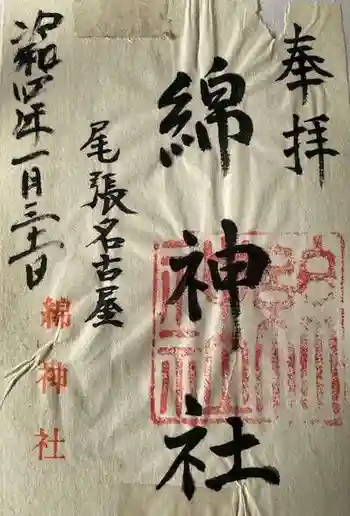 奉拝
綿神社
尾張名古屋
令和四年一月三十一日
綿神社